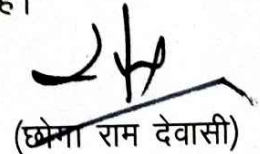 है।
(छोगा राम देवासी)